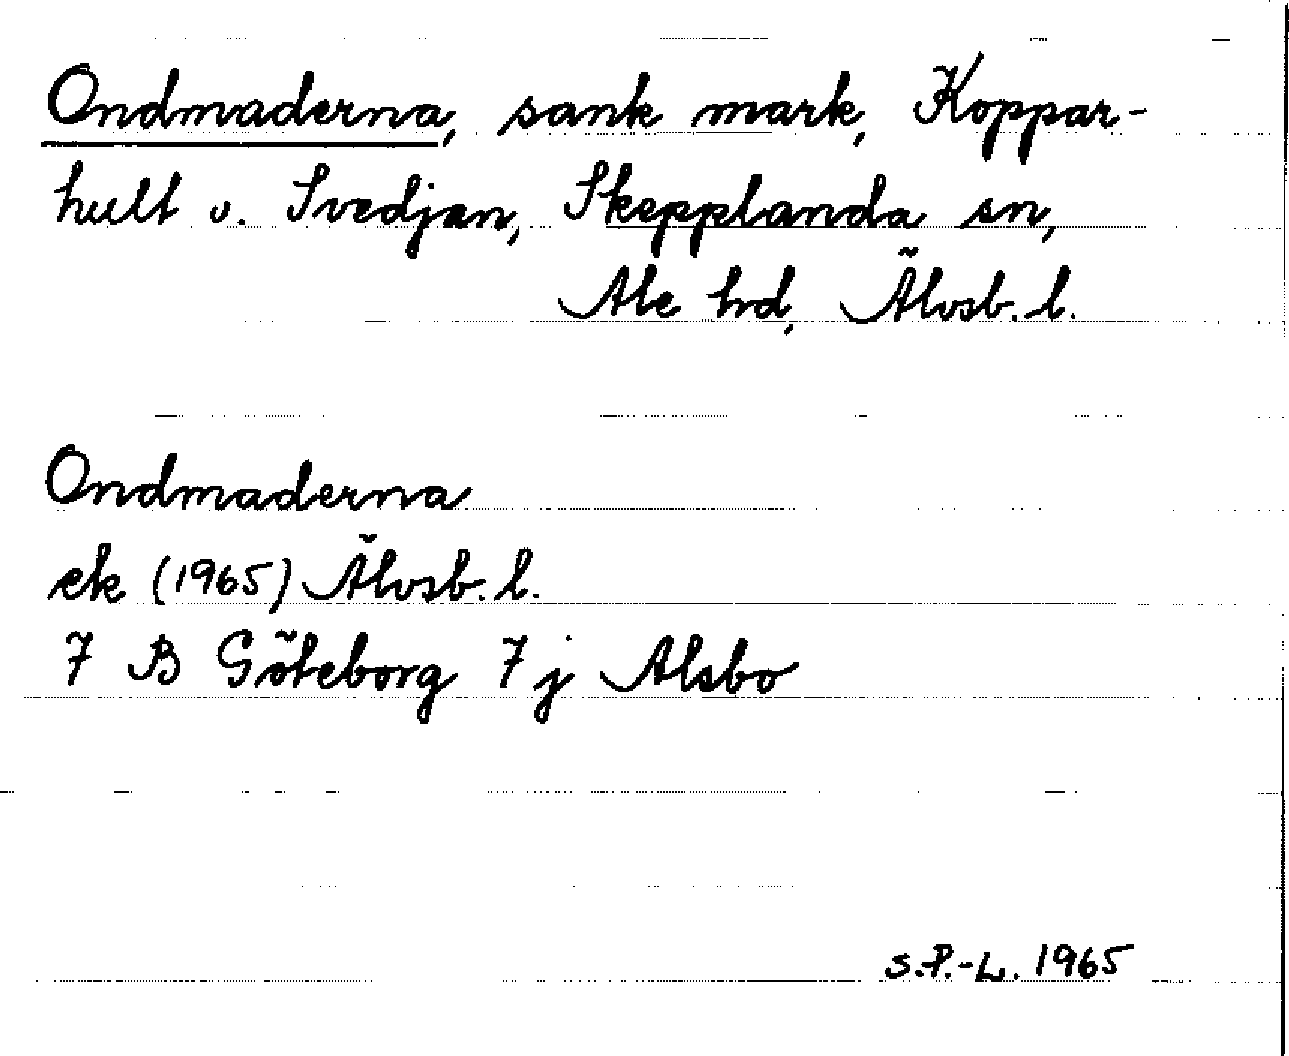 Ondmaderna, sank mark, Koppar-
hult o. Svedjan, Skepplanda sn,
Ale hrd, Älvsb. l.
Ondmaderna
ek (1965) Älvsb. l.
7 B Göteborg 7 j Alsbo
S.P.-L. 1965